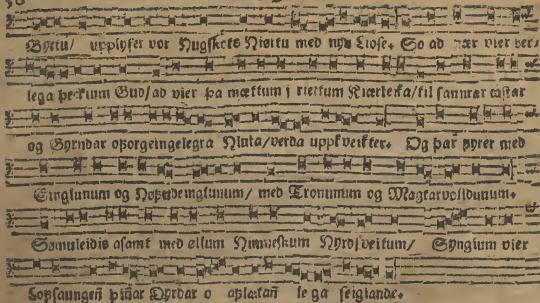 Byrtu/ upplyser vor Hugskots Hiortu med nyu Liose. So ad nær vier ver-
lega þeckium Gud/ ad vier þa mættum j riettum Kiærleika/ til sannrar
og Gyrndar osorgeingelegra Hluta/ verda uppkveikter. Og þar fyrer med
Einglunum og Hofudeinglunum/ med Tronunum og Magtarvolldunum.
Somuleidis asamt med ollum Himneskum Hyrdsveitum/ Syngium vier
Lofsaungeñ þiñar Dyrdar o aflatañ lega seigiande.